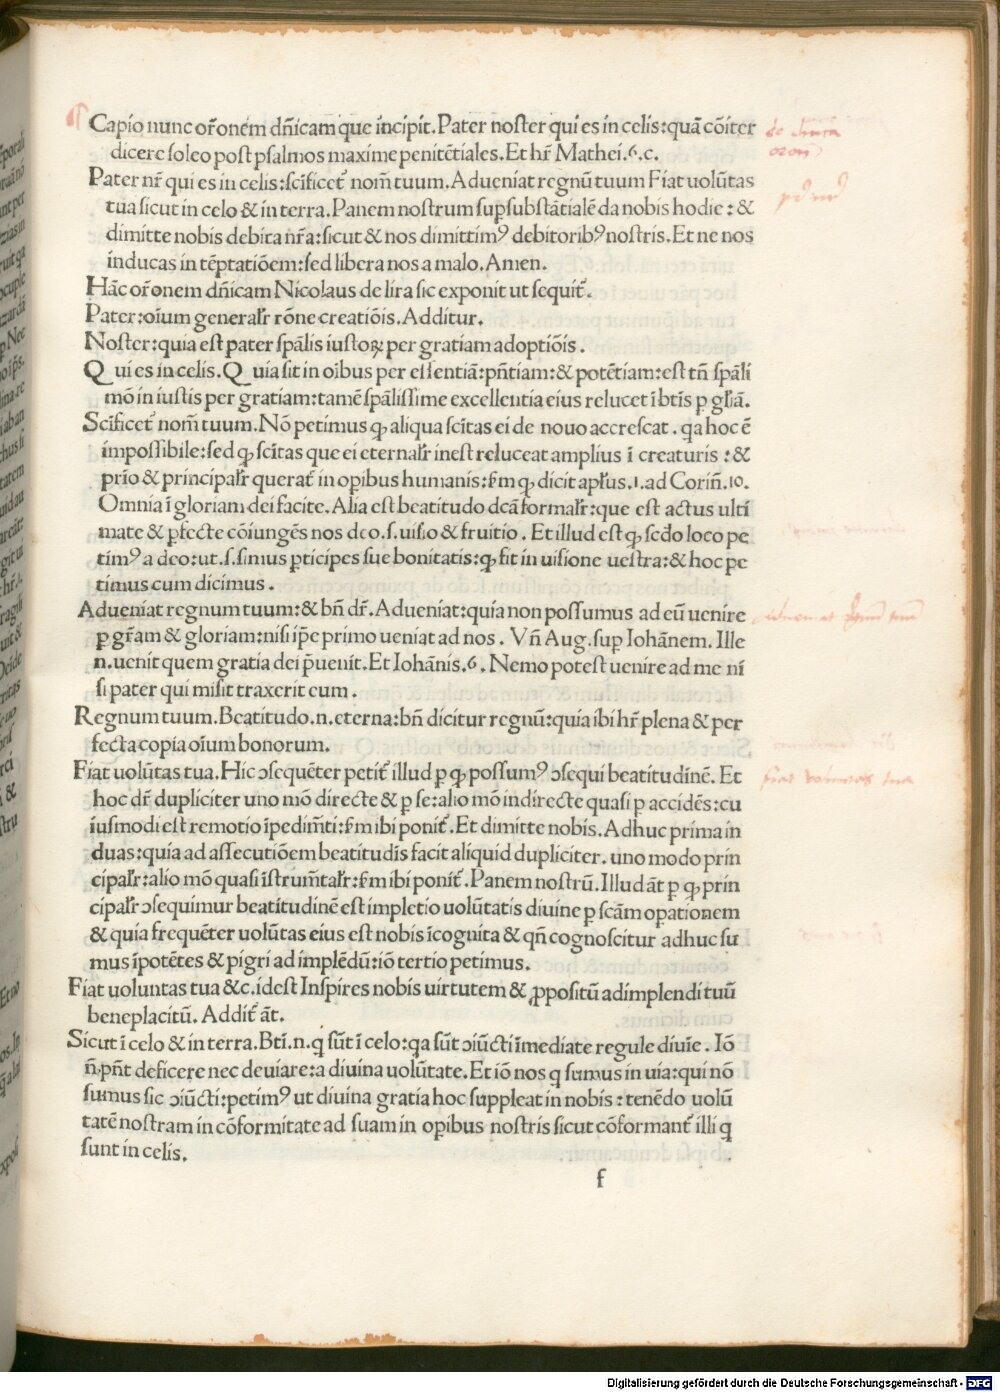 Capio nunc or̃onem dñicam que incipit. Pater noster qui es in celis: quã cõiter
dicere soleo post psalmos maxime penitẽtiales. Et hr̃ Mathei. 6. c.
Pater nr̃ qui es in celis: scĩficet᷑ nom̃ tuum. Adueniat regnũ tuum Fiat uolũtas
tua sicut in celo & in terra. Panem nostrum suꝑsubstãtialẽ da nobis hodie: &
dimitte nobis debita nr̃a: sicut & nos dimittimꝰ debitoribꝰ nostris. Et ne nos
inducas in tẽptatiõem: sed libera nos a malo. Amen.
Hãc or̃onem dñicam Nicolaus de lira sic exponit ut sequit᷑.
Pater: oĩum general̃r rõne creatiõis. Additur.
Noster: quia est pater sp̃alis iustoꝝ per gratiam adoptiõis.
Qui es in celis. Quia sit in oĩbus per essentiã: pñtiam: & potẽtiam: est tñ sp̃ali
mõ in iustis per gratiam: tamẽ sp̃alissime excellentia eius relucet ĩ btĩs ꝑ gl̃iã.
Scĩficet᷑ nom̃ tuum. Nõ petimus ꝙ aliqua scĩtas ei de nouo accrescat. qa hoc ẽ
impossibile: sed ꝙ scĩtas que ei eternal̃r inest reluceat amplius ĩ creaturis: &
prio & principal̃r querat᷑ in opibus humanis: ẜm ꝙ dicit apl̃us. 1. ad Coriñ. 10.
Omnia ĩ gloriam dei facite. Alia est beatitudo dcã formal̃r: que est actus ulti
mate & ꝑfecte cõiungẽs nos deo. s. uisio & fruitio. Et illud est ꝙ sec̃do loco pe
timꝰ a deo: ut. s. simus ꝑticipes sue bonitatis: ꝙ fit in uisione uestra: & hoc pe
timus cum dicimus.
Adueniat regnum tuum: & bñ dr̃. Adueniat: quia non possumus ad eũ uenire
ꝑ gr̃am & gloriam: nisi ip̃e primo ueniat ad nos. Vñ Aug. sup Iohãnem. Ille
n. uenit quem gratia dei p̃uenit. Et Iohãnis. 6. Nemo potest uenire ad me ni
si pater qui misit traxerit eum.
Regnum tuum. Beatitudo. n. eterna: bñ dicitur regnũ: quia ibi hr̃ plena & per
fecta copia oĩum bonorum.
Fiat uolũtas tua. Hic ↄsequẽter petit᷑ illud ꝑ ꝙ possumꝰ ↄsequi beatitudinẽ. Et
hoc dr̃ dupliciter uno mõ directe & ꝑ se: alio mõ indirecte quasi ꝑ accidẽs: cu
iusmodi est remotio ĩpedim̃ti: ẜm ibi ponit᷑. Et dimitte nobis. Adhuc prima in
duas: quia ad assecutiõem beatitudĩs facit aliquid dupliciter. uno modo prin
cipal̃r: alio mõ quasi ĩstrum̃tal̃r: ẜm ibi ponit᷑. Panem nostrũ. Illud ãt ꝑ ꝙ prin
cipal̃r ↄsequimur beatitudinẽ est impletio uolũtatis diuine ꝑ scãm opationem
& quia frequẽter uolũtas eius est nobis ĩcognita & qñ cognoscitur adhuc su
mus ĩpotẽtes & pigri ad implẽdũ: iõ tertio petimus.
Fiat uoluntas tua &c. idest Inspires nobis uirtutem & ꝓpositũ adimplendi tuũ
beneplacitũ. Addit᷑ ãt.
Sicut ĩ celo & in terra. Btĩ. n. q sũt ĩ celo: qa sũt ↄiũcti ĩmediate regule diuĩe. Iõ
ñ pñt deficere nec deuiare: a diuina uolũtate. Et iõ nos q sumus in uia: qui nõ
sumus sic ↄiũcti: petimꝰ ut diuina gratia hoc suppleat in nobis: tenẽdo uolũ
tatẽ nostram in cõformitate ad suam in opibus nostris sicut cõformant᷑ illi q
sunt in celis.
f
Adueniat regnũ tuum
fiat voluntas tua
Digitalisierung gefördert durch die Deutsche Forschungsgemeinschaft - DFG